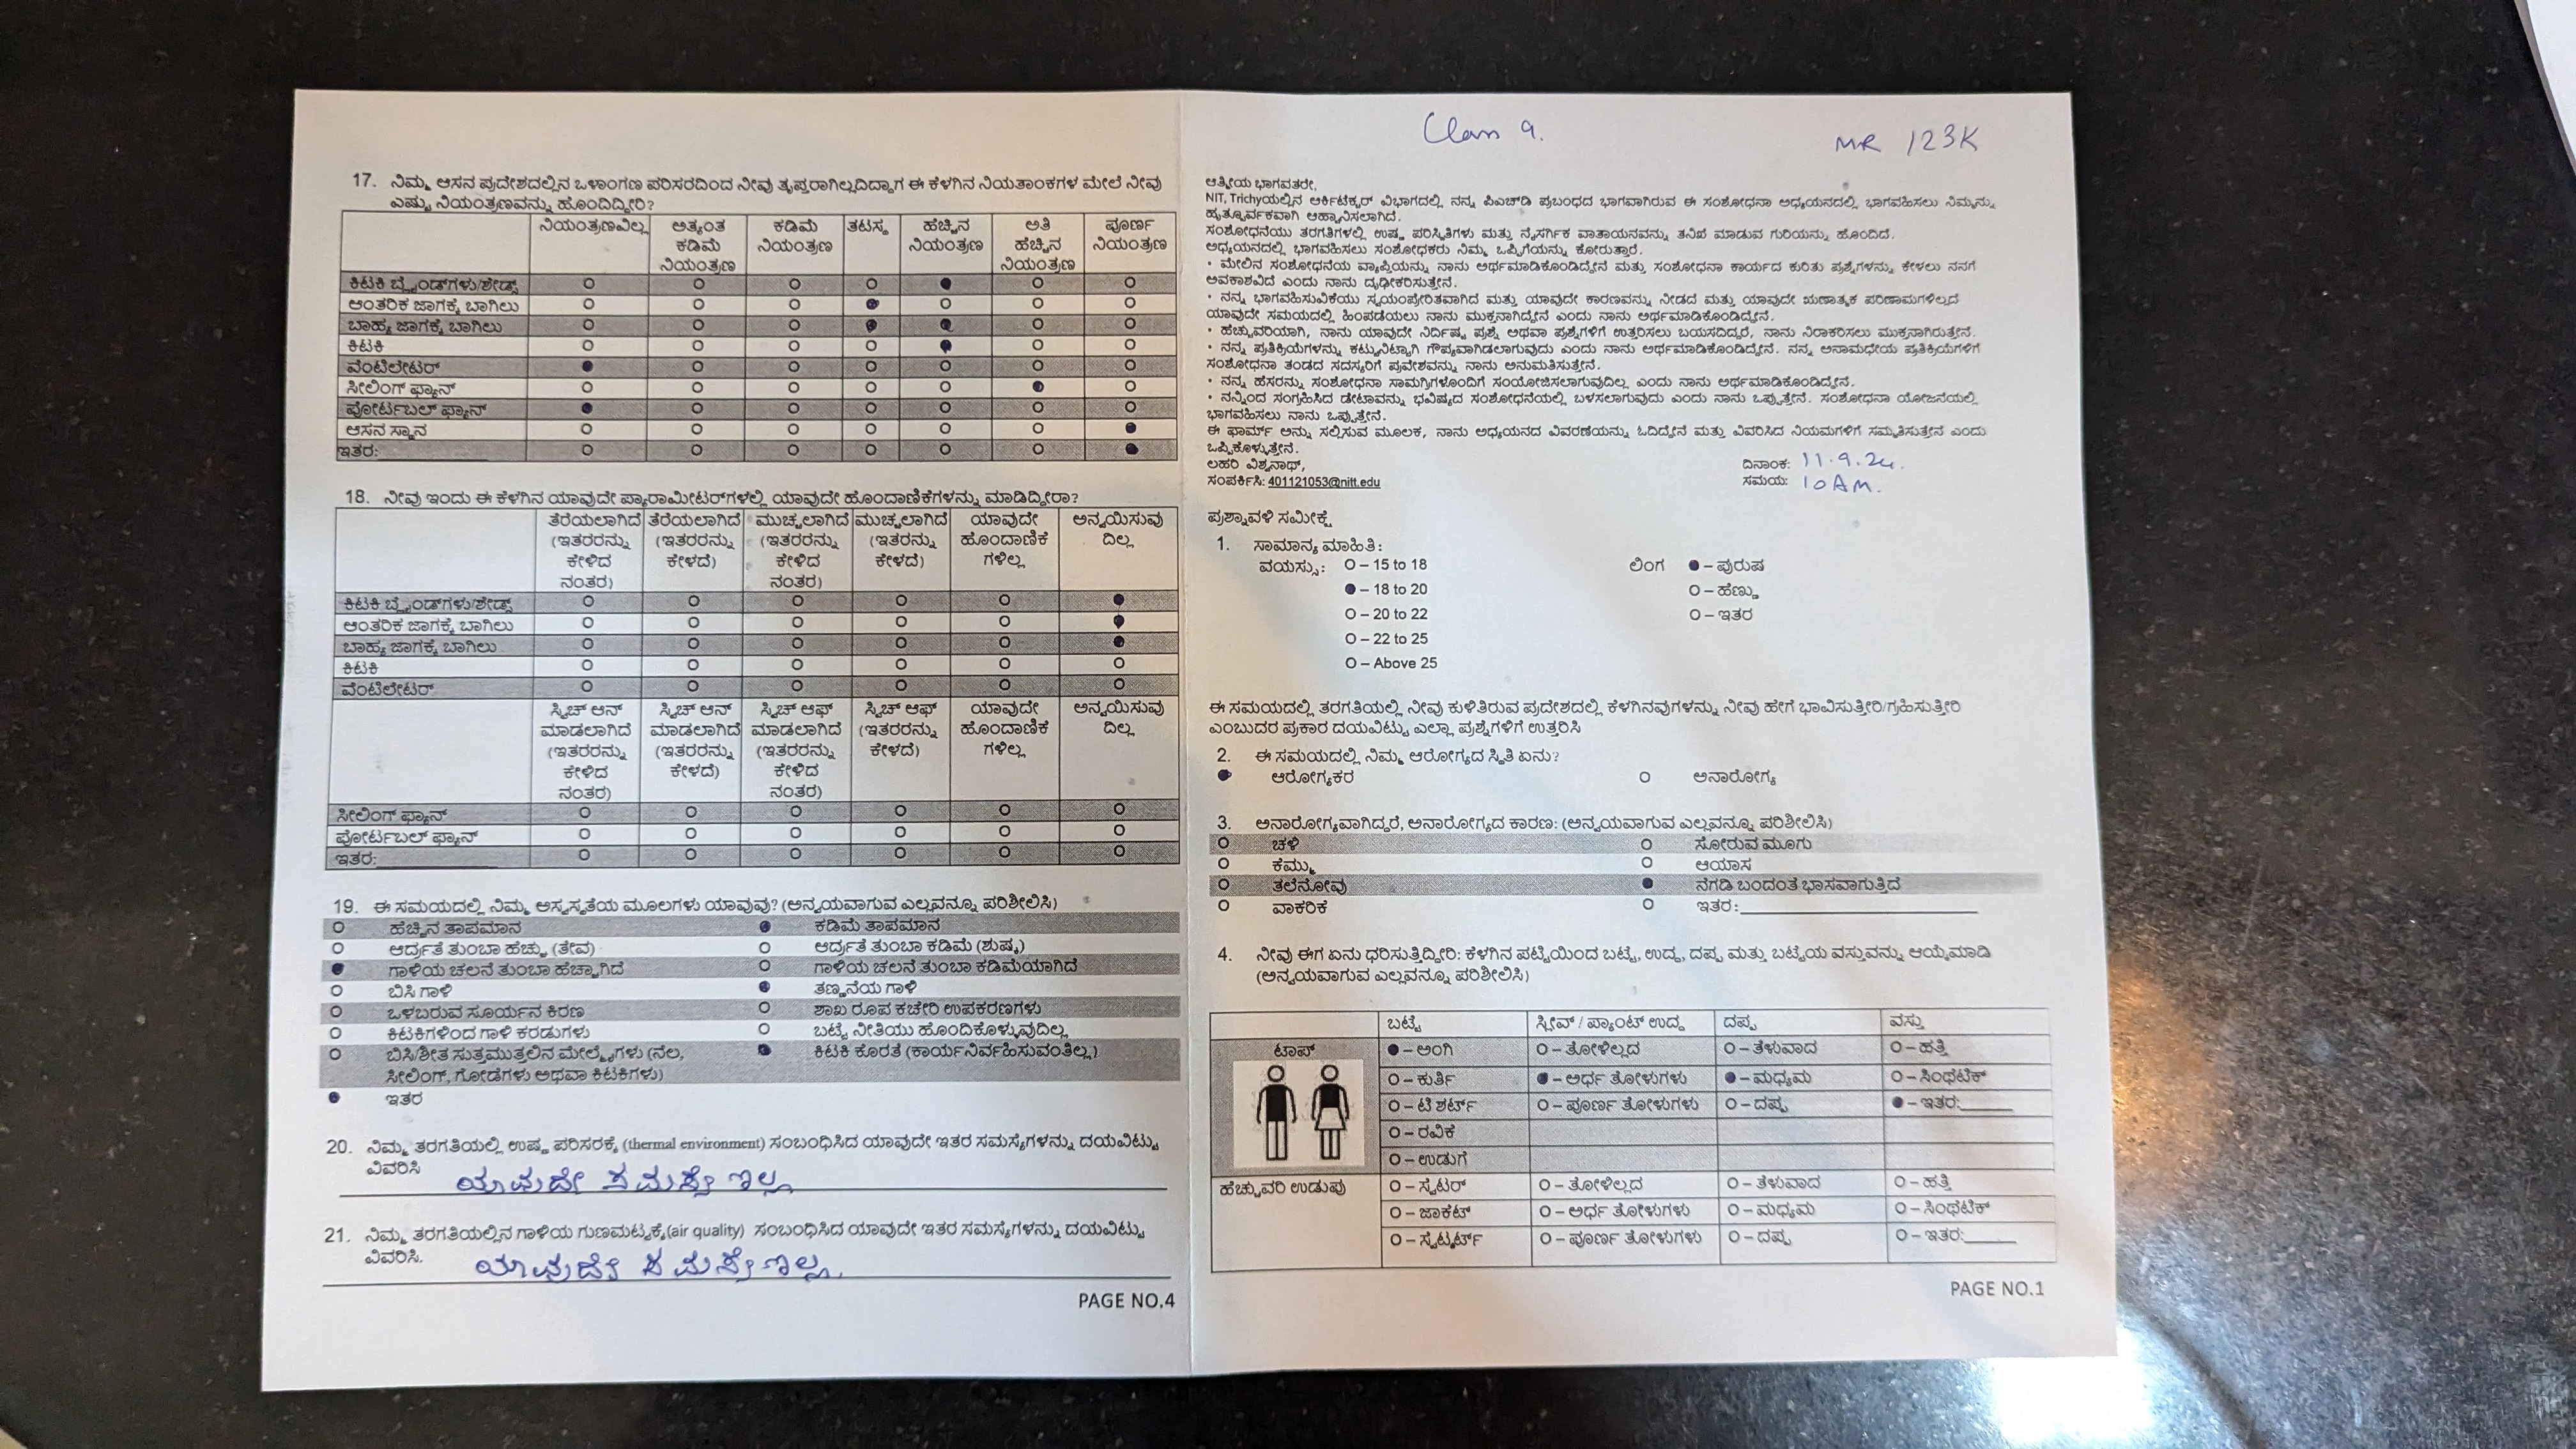 17. ನಿಮ್ಮ ಆಸನ ಪ್ರದೇಶದಲ್ಲಿನ ಒಳಾಂಗಣ ಪರಿಸರದಿಂದ ನೀವು ತೃಪ್ತರಾಗಿಲ್ಲದಿದ್ದಾಗ ಈ ಕೆಳಗಿನ ನಿಯತಾಂಕಗಳ ಮೇಲೆ ನೀವು
ಎಷ್ಟು ನಿಯಂತ್ರಣವನ್ನು ಹೊಂದಿದ್ದೀರಿ?
ನಿಯಂತ್ರಣವಿಲ್ಲ ಅತ್ಯಂತ ಕಡಿಮೆ ನಿಯಂತ್ರಣ ಕಡಿಮೆ ನಿಯಂತ್ರಣ ತಟಸ್ಥ ಹೆಚ್ಚಿನ ನಿಯಂತ್ರಣ ಅತಿ ಹೆಚ್ಚಿನ ನಿಯಂತ್ರಣ ಪೂರ್ಣ ನಿಯಂತ್ರಣ
ಕಿಟಕಿ ಬ್ಲೈಂಡ್‌ಗಳು/ಶೇಡ್ಸ್
ಆಂತರಿಕ ಜಾಗಕ್ಕೆ ಬಾಗಿಲು
ಬಾಹ್ಯ ಜಾಗಕ್ಕೆ ಬಾಗಿಲು
ಕಿಟಕಿ
ವೆಂಟಿಲೇಟರ್
ಸೀಲಿಂಗ್ ಫ್ಯಾನ್
ಪೋರ್ಟಬಲ್ ಫ್ಯಾನ್
ಆಸನ ಸ್ಥಾನ
ಇತರ:
18. ನೀವು ಇಂದು ಈ ಕೆಳಗಿನ ಯಾವುದೇ ಪ್ಯಾರಾಮೀಟರ್‌ಗಳಲ್ಲಿ ಯಾವುದೇ ಹೊಂದಾಣಿಕೆಗಳನ್ನು ಮಾಡಿದ್ದೀರಾ?
ತೆರೆಯಲಾಗಿದೆ (ಇತರರನ್ನು ಕೇಳಿದ ನಂತರ) ತೆರೆಯಲಾಗಿದೆ (ಇತರರನ್ನು ಕೇಳದೆ) ಮುಚ್ಚಲಾಗಿದೆ (ಇತರರನ್ನು ಕೇಳಿದ ನಂತರ) ಮುಚ್ಚಲಾಗಿದೆ (ಇತರರನ್ನು ಕೇಳದೆ) ಯಾವುದೇ ಹೊಂದಾಣಿಕೆ ಗಳಿಲ್ಲ ಅನ್ವಯಿಸುವು ದಿಲ್ಲ
ಕಿಟಕಿ ಬ್ಲೈಂಡ್‌ಗಳು/ಶೇಡ್ಸ್
ಆಂತರಿಕ ಜಾಗಕ್ಕೆ ಬಾಗಿಲು
ಬಾಹ್ಯ ಜಾಗಕ್ಕೆ ಬಾಗಿಲು
ಕಿಟಕಿ
ವೆಂಟಿಲೇಟರ್
ಸ್ವಿಚ್ ಆನ್ ಮಾಡಲಾಗಿದೆ (ಇತರರನ್ನು ಕೇಳಿದ ನಂತರ) ಸ್ವಿಚ್ ಆನ್ ಮಾಡಲಾಗಿದೆ (ಇತರರನ್ನು ಕೇಳದೆ) ಸ್ವಿಚ್ ಆಫ್ ಮಾಡಲಾಗಿದೆ (ಇತರರನ್ನು ಕೇಳಿದ ನಂತರ) ಸ್ವಿಚ್ ಆಫ್ (ಇತರರನ್ನು ಕೇಳದೆ) ಯಾವುದೇ ಹೊಂದಾಣಿಕೆ ಗಳಿಲ್ಲ ಅನ್ವಯಿಸುವು ದಿಲ್ಲ
ಸೀಲಿಂಗ್ ಫ್ಯಾನ್
ಪೋರ್ಟಬಲ್ ಫ್ಯಾನ್
ಇತರ:
19. ಈ ಸಮಯದಲ್ಲಿ ನಿಮ್ಮ ಅಸ್ವಸ್ಥತೆಯ ಮೂಲಗಳು ಯಾವುವು? (ಅನ್ವಯವಾಗುವ ಎಲ್ಲವನ್ನೂ ಪರಿಶೀಲಿಸಿ)
ಹೆಚ್ಚಿನ ತಾಪಮಾನ ಕಡಿಮೆ ತಾಪಮಾನ
ಆರ್ದ್ರತೆ ತುಂಬಾ ಹೆಚ್ಚು (ತೇವ) ಆರ್ದ್ರತೆ ತುಂಬಾ ಕಡಿಮೆ (ಶುಷ್ಕ)
ಗಾಳಿಯ ಚಲನೆ ತುಂಬಾ ಹೆಚ್ಚಾಗಿದೆ ಗಾಳಿಯ ಚಲನೆ ತುಂಬಾ ಕಡಿಮೆಯಾಗಿದೆ
ಬಿಸಿ ಗಾಳಿ ತಣ್ಣನೆಯ ಗಾಳಿ
ಒಳಬರುವ ಸೂರ್ಯನ ಕಿರಣ ಶಾಖ ರೂಪ ಕಚೇರಿ ಉಪಕರಣಗಳು
ಕಿಟಕಿಗಳಿಂದ ಗಾಳಿ ಕರಡುಗಳು ಬಟ್ಟೆ ನೀತಿಯು ಹೊಂದಿಕೊಳ್ಳುವುದಿಲ್ಲ
ಬಿಸಿ/ಶೀತ ಸುತ್ತಮುತ್ತಲಿನ ಮೇಲ್ಮೈಗಳು (ನೆಲ, ಕಿಟಕಿ ಕೊರತೆ (ಕಾರ್ಯನಿರ್ವಹಿಸುವಂತಿಲ್ಲ)
ಸೀಲಿಂಗ್, ಗೋಡೆಗಳು ಅಥವಾ ಕಿಟಕಿಗಳು)
ಇತರ
20. ನಿಮ್ಮ ತರಗತಿಯಲ್ಲಿ ಉಷ್ಣ ಪರಿಸರಕ್ಕೆ (thermal environment) ಸಂಬಂಧಿಸಿದ ಯಾವುದೇ ಇತರ ಸಮಸ್ಯೆಗಳನ್ನು ದಯವಿಟ್ಟು
ವಿವರಿಸಿ ಯಾವುದೇ ಸಮಸ್ಯೇ ಇಲ್ಲ
21. ನಿಮ್ಮ ತರಗತಿಯಲ್ಲಿನ ಗಾಳಿಯ ಗುಣಮಟ್ಟಕ್ಕೆ(air quality) ಸಂಬಂಧಿಸಿದ ಯಾವುದೇ ಇತರ ಸಮಸ್ಯೆಗಳನ್ನು ದಯವಿಟ್ಟು
ವಿವರಿಸಿ. ಯಾವುದೇ ಸಮಸ್ಯೇ ಇಲ್ಲ.
PAGE NO.4
Class 9.
MR 123K
ಆತ್ಮೀಯ ಭಾಗವತರೇ,
NIT, Trichyಯಲ್ಲಿನ ಆರ್ಕಿಟೆಕ್ಚರ್ ವಿಭಾಗದಲ್ಲಿ ನನ್ನ ಪಿಎಚ್‌ಡಿ ಪ್ರಬಂಧದ ಭಾಗವಾಗಿರುವ ಈ ಸಂಶೋಧನಾ ಅಧ್ಯಯನದಲ್ಲಿ ಭಾಗವಹಿಸಲು ನಿಮ್ಮನ್ನು
ಹೃತ್ಪೂರ್ವಕವಾಗಿ ಆಹ್ವಾನಿಸಲಾಗಿದೆ.
ಸಂಶೋಧನೆಯು ತರಗತಿಗಳಲ್ಲಿ ಉಷ್ಣ ಪರಿಸ್ಥಿತಿಗಳು ಮತ್ತು ನೈಸರ್ಗಿಕ ವಾತಾಯನವನ್ನು ತನಿಖೆ ಮಾಡುವ ಗುರಿಯನ್ನು ಹೊಂದಿದೆ.
ಅಧ್ಯಯನದಲ್ಲಿ ಭಾಗವಹಿಸಲು ಸಂಶೋಧಕರು ನಿಮ್ಮ ಒಪ್ಪಿಗೆಯನ್ನು ಕೋರುತ್ತಾರೆ.
• ಮೇಲಿನ ಸಂಶೋಧನೆಯ ವ್ಯಾಪ್ತಿಯನ್ನು ನಾನು ಅರ್ಥಮಾಡಿಕೊಂಡಿದ್ದೇನೆ ಮತ್ತು ಸಂಶೋಧನಾ ಕಾರ್ಯದ ಕುರಿತು ಪ್ರಶ್ನೆಗಳನ್ನು ಕೇಳಲು ನನಗೆ
ಅವಕಾಶವಿದೆ ಎಂದು ನಾನು ದೃಢೀಕರಿಸುತ್ತೇನೆ.
• ನನ್ನ ಭಾಗವಹಿಸುವಿಕೆಯು ಸ್ವಯಂಪ್ರೇರಿತವಾಗಿದೆ ಮತ್ತು ಯಾವುದೇ ಕಾರಣವನ್ನು ನೀಡದೆ ಮತ್ತು ಯಾವುದೇ ಋಣಾತ್ಮಕ ಪರಿಣಾಮಗಳಿಲ್ಲದೆ
ಯಾವುದೇ ಸಮಯದಲ್ಲಿ ಹಿಂಪಡೆಯಲು ನಾನು ಮುಕ್ತನಾಗಿದ್ದೇನೆ ಎಂದು ನಾನು ಅರ್ಥಮಾಡಿಕೊಂಡಿದ್ದೇನೆ.
• ಹೆಚ್ಚುವರಿಯಾಗಿ, ನಾನು ಯಾವುದೇ ನಿರ್ದಿಷ್ಟ ಪ್ರಶ್ನೆ ಅಥವಾ ಪ್ರಶ್ನೆಗಳಿಗೆ ಉತ್ತರಿಸಲು ಬಯಸದಿದ್ದರೆ, ನಾನು ನಿರಾಕರಿಸಲು ಮುಕ್ತನಾಗಿರುತ್ತೇನೆ.
• ನನ್ನ ಪ್ರತಿಕ್ರಿಯೆಗಳನ್ನು ಕಟ್ಟುನಿಟ್ಟಾಗಿ ಗೌಪ್ಯವಾಗಿಡಲಾಗುವುದು ಎಂದು ನಾನು ಅರ್ಥಮಾಡಿಕೊಂಡಿದ್ದೇನೆ. ನನ್ನ ಅನಾಮಧೇಯ ಪ್ರತಿಕ್ರಿಯೆಗಳಿಗೆ
ಸಂಶೋಧನಾ ತಂಡದ ಸದಸ್ಯರಿಗೆ ಪ್ರವೇಶವನ್ನು ನಾನು ಅನುಮತಿಸುತ್ತೇನೆ.
• ನನ್ನ ಹೆಸರನ್ನು ಸಂಶೋಧನಾ ಸಾಮಗ್ರಿಗಳೊಂದಿಗೆ ಸಂಯೋಜಿಸಲಾಗುವುದಿಲ್ಲ ಎಂದು ನಾನು ಅರ್ಥಮಾಡಿಕೊಂಡಿದ್ದೇನೆ.
• ನನ್ನಿಂದ ಸಂಗ್ರಹಿಸಿದ ಡೇಟಾವನ್ನು ಭವಿಷ್ಯದ ಸಂಶೋಧನೆಯಲ್ಲಿ ಬಳಸಲಾಗುವುದು ಎಂದು ನಾನು ಒಪ್ಪುತ್ತೇನೆ. ಸಂಶೋಧನಾ ಯೋಜನೆಯಲ್ಲಿ
ಭಾಗವಹಿಸಲು ನಾನು ಒಪ್ಪುತ್ತೇನೆ.
ಈ ಫಾರ್ಮ್ ಅನ್ನು ಸಲ್ಲಿಸುವ ಮೂಲಕ, ನಾನು ಅಧ್ಯಯನದ ವಿವರಣೆಯನ್ನು ಓದಿದ್ದೇನೆ ಮತ್ತು ವಿವರಿಸಿದ ನಿಯಮಗಳಿಗೆ ಸಮ್ಮತಿಸುತ್ತೇನೆ ಎಂದು
ಒಪ್ಪಿಕೊಳ್ಳುತ್ತೇನೆ.
ಲಹರಿ ವಿಶ್ವನಾಥ್, ದಿನಾಂಕ: 11.9.24.
ಸಂಪರ್ಕಿಸಿ: 401121053@nitt.edu ಸಮಯ: 10 AM.
ಪ್ರಶ್ನಾವಳಿ ಸಮೀಕ್ಷೆ
1. ಸಾಮಾನ್ಯ ಮಾಹಿತಿ:
ವಯಸ್ಸು: – 15 to 18 ಲಿಂಗ – ಪುರುಷ
– 18 to 20 – ಹೆಣ್ಣು
– 20 to 22 – ಇತರ
– 22 to 25
– Above 25
ಈ ಸಮಯದಲ್ಲಿ ತರಗತಿಯಲ್ಲಿ ನೀವು ಕುಳಿತಿರುವ ಪ್ರದೇಶದಲ್ಲಿ ಕೆಳಗಿನವುಗಳನ್ನು ನೀವು ಹೇಗೆ ಭಾವಿಸುತ್ತೀರಿ/ಗ್ರಹಿಸುತ್ತೀರಿ
ಎಂಬುದರ ಪ್ರಕಾರ ದಯವಿಟ್ಟು ಎಲ್ಲಾ ಪ್ರಶ್ನೆಗಳಿಗೆ ಉತ್ತರಿಸಿ
2. ಈ ಸಮಯದಲ್ಲಿ ನಿಮ್ಮ ಆರೋಗ್ಯದ ಸ್ಥಿತಿ ಏನು?
ಆರೋಗ್ಯಕರ ಅನಾರೋಗ್ಯ
3. ಅನಾರೋಗ್ಯವಾಗಿದ್ದರೆ, ಅನಾರೋಗ್ಯದ ಕಾರಣ: (ಅನ್ವಯವಾಗುವ ಎಲ್ಲವನ್ನೂ ಪರಿಶೀಲಿಸಿ)
ಚಳಿ ಸೋರುವ ಮೂಗು
ಕೆಮ್ಮು ಆಯಾಸ
ತಲೆನೋವು ನೆಗಡಿ ಬಂದಂತೆ ಭಾಸವಾಗುತ್ತಿದೆ
ವಾಕರಿಕೆ ಇತರ:
4. ನೀವು ಈಗ ಏನು ಧರಿಸುತ್ತಿದ್ದೀರಿ: ಕೆಳಗಿನ ಪಟ್ಟಿಯಿಂದ ಬಟ್ಟೆ, ಉದ್ದ, ದಪ್ಪ ಮತ್ತು ಬಟ್ಟೆಯ ವಸ್ತುವನ್ನು ಆಯ್ಕೆಮಾಡಿ
(ಅನ್ವಯವಾಗುವ ಎಲ್ಲವನ್ನೂ ಪರಿಶೀಲಿಸಿ)
ಬಟ್ಟೆ ಸ್ಲೀವ್ / ಪ್ಯಾಂಟ್ ಉದ್ದ ದಪ್ಪ ವಸ್ತು
ಟಾಪ್ – ಅಂಗಿ – ತೋಳಿಲ್ಲದ – ತೆಳುವಾದ – ಹತ್ತಿ
– ಕುರ್ತಿ – ಅರ್ಧ ತೋಳುಗಳು – ಮಧ್ಯಮ – ಸಿಂಥೆಟಿಕ್
– ಟಿ ಶರ್ಟ್ – ಪೂರ್ಣ ತೋಳುಗಳು – ದಪ್ಪ – ಇತರ:
– ರವಿಕೆ
– ಉಡುಗೆ
ಹೆಚ್ಚುವರಿ ಉಡುಪು – ಸ್ವೆಟರ್ – ತೋಳಿಲ್ಲದ – ತೆಳುವಾದ – ಹತ್ತಿ
– ಜಾಕೆಟ್ – ಅರ್ಧ ತೋಳುಗಳು – ಮಧ್ಯಮ – ಸಿಂಥೆಟಿಕ್
– ಸ್ವೆಟ್ಶರ್ಟ್ – ಪೂರ್ಣ ತೋಳುಗಳು – ದಪ್ಪ – ಇತರ:
PAGE NO.1